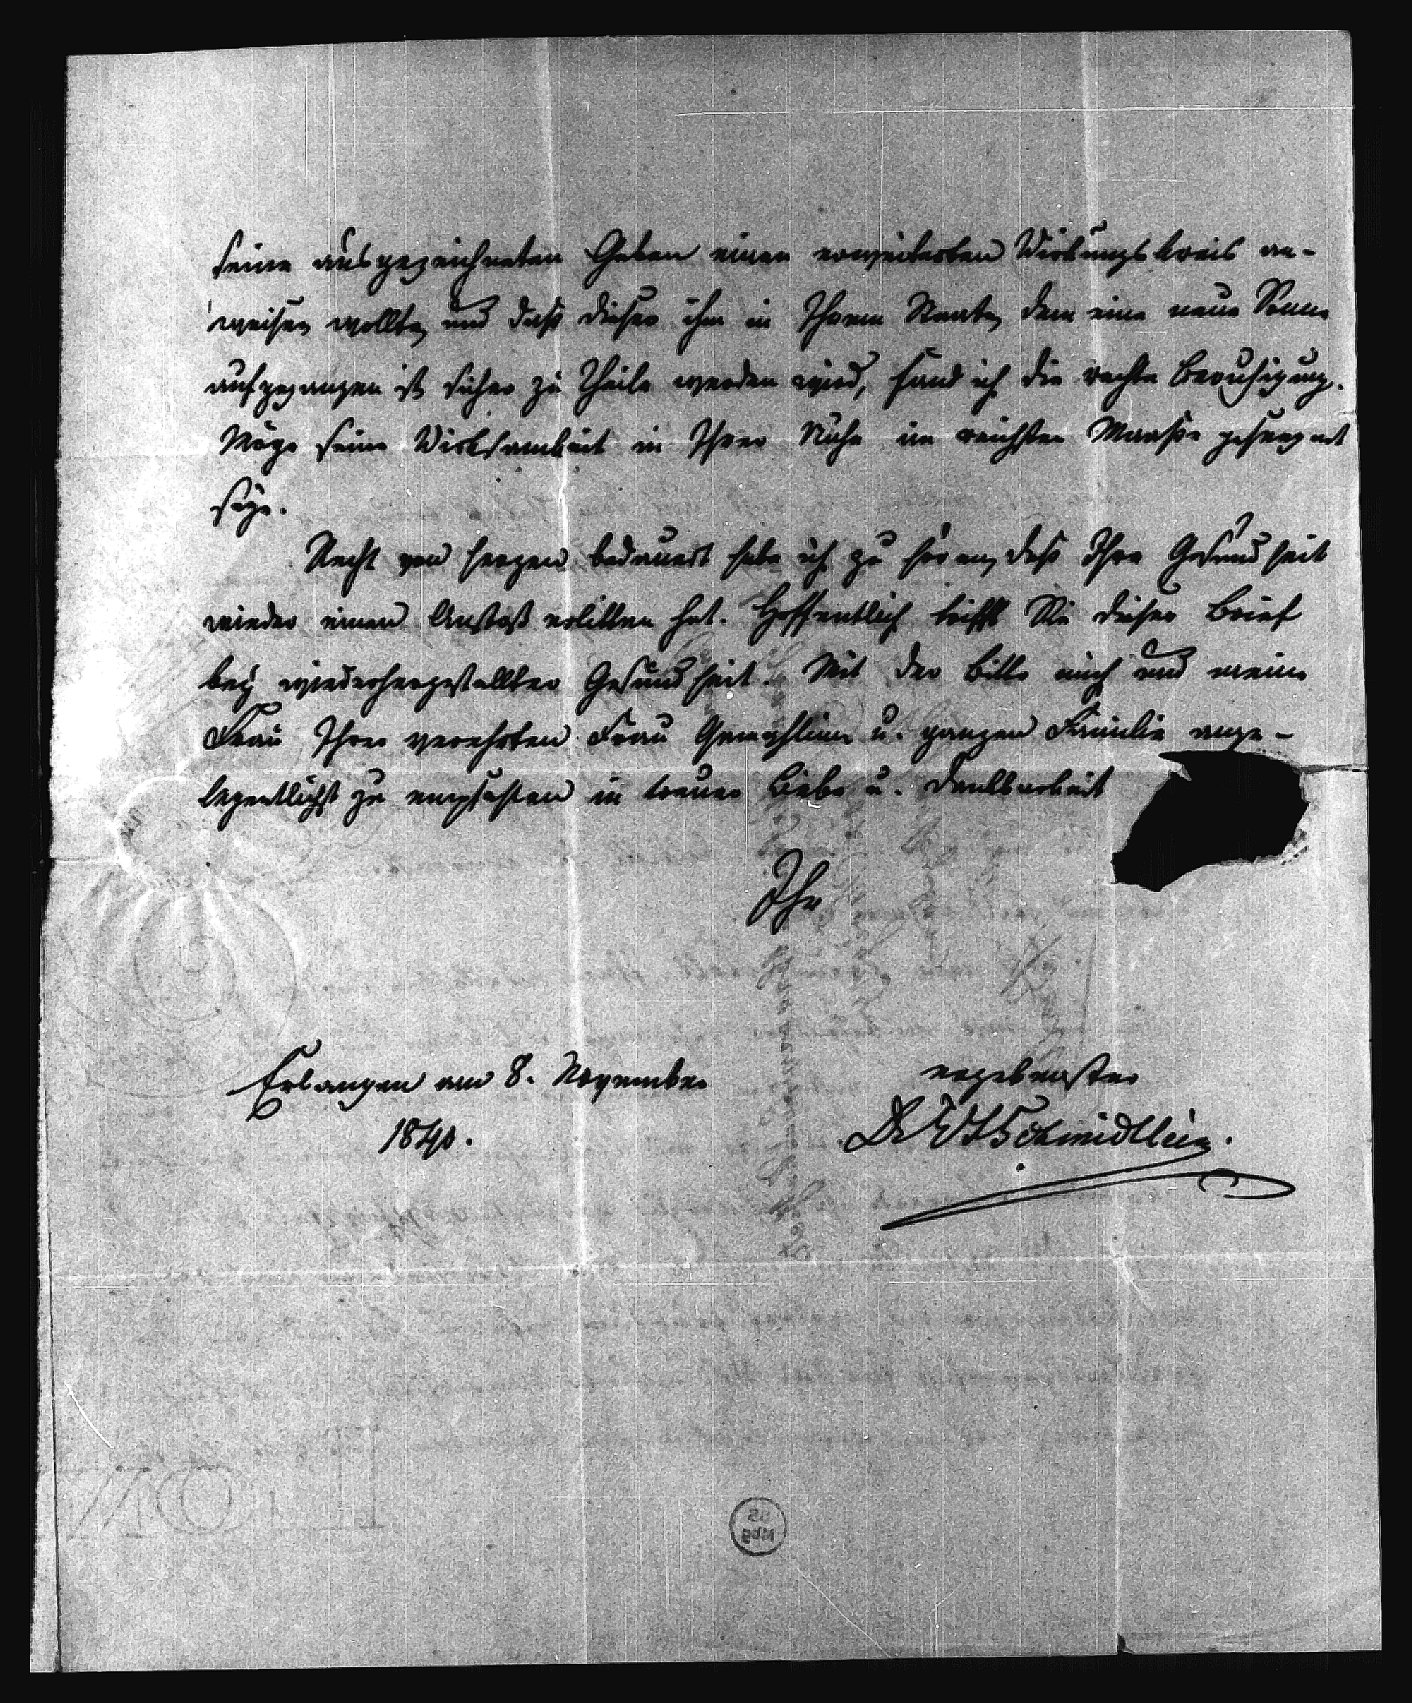 seine ausgezeichneten Gaben einen erweiterten Wirkungskreis an-
weisen wollte, und daß dieser ihm in Ihrem Staate, dem eine neue Sonne
aufgegangen ist sicher zu Theile werden wird, fand ich die rechte Beruhigung.
Möge seine Wirksamkeit in Ihrer Nähe im reichsten Maaße gesegnet
seyn.
Recht von Herzen bedauert habe ich zu hören, daß Ihre Gesundheit
wieder einen Anstoß erlitten hat. Hoffentlich trifft Sie dieser Brief
bey wiederhergestellter Gesundheit. Mit der Bitte mich und meine
Frau Ihrer verehrten Frau Gemahlinn u. ganzen Familie ange-
legentlichst zu empfehlen in treuer Liebe u. Dankbarkeit
Ihr
Erlangen am 8. November
ergebenster
1840.
Dr Schmidtlein.